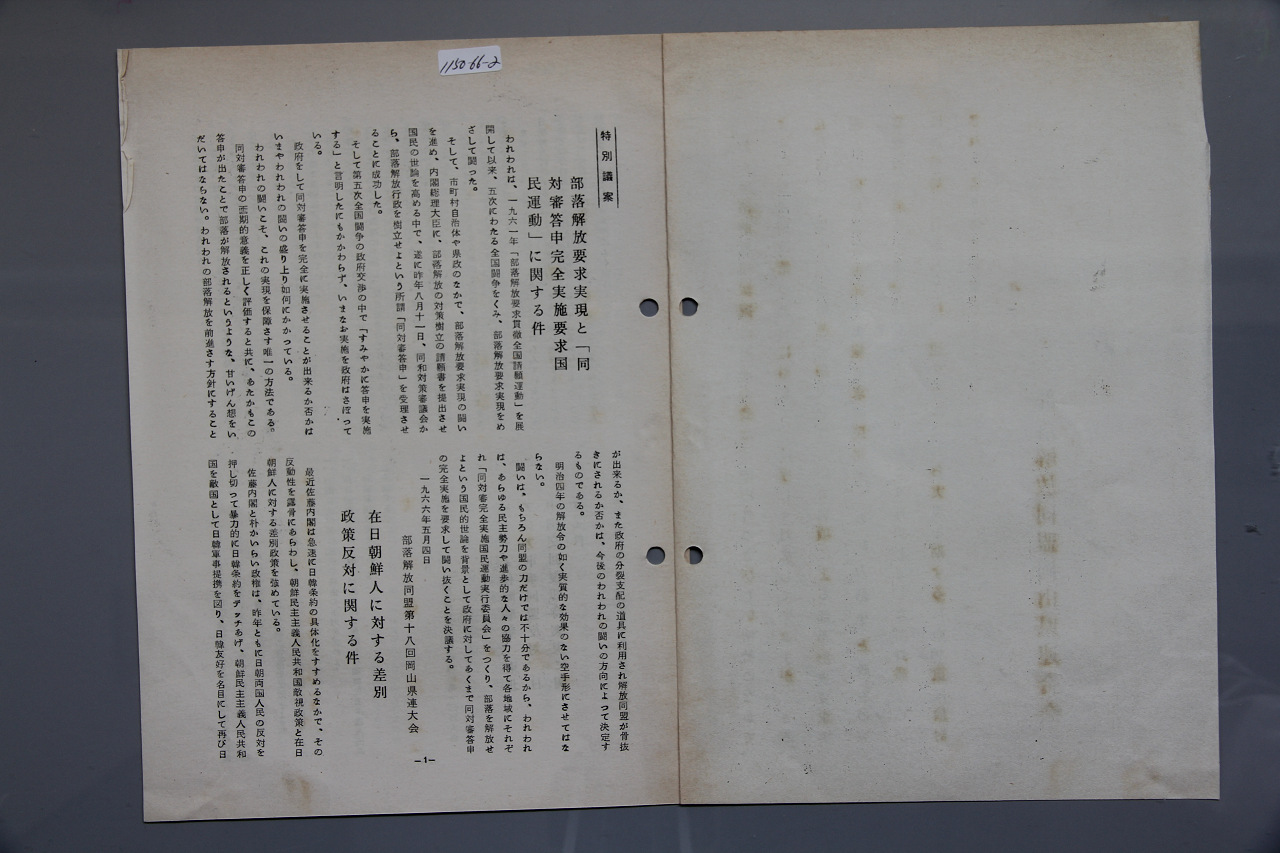 1150-66-2
特別議案
部落解放要求実現と「同
対審答申完全実施要求国
民運動」に関する件
われわれは、一九六一年「部落解放要求貫徹全国請願運動」を展
開して以来、五次にわたる全国闘争をくみ、部落解放要求実現をめ
ざして闘った。
そして、市町村自治体や県政のなかで、部落解放要求実現の闘い
を進め、内閣総理大臣に、部落解放の対策樹立の請願書を提出させ
国民の世論を高める中で、遂に昨年八月十一日、同和対策審議会か
ら、部落解放行政を樹立せよという所謂「同対審答申」を受理させ
ることに成功した。
そして第五次全国闘争の政府交渉の中で「すみやかに答申を実施
する」と言明したにもかかわらず、いまなお実施を政府はさぼって
いる。
政府をして同対審答申を完全に実施させることが出来るか否かは
いまやわれわれの闘いの盛り上り如何にかかっている。
われわれの闘いこそ、これの実現を保障さす唯一の方法である。
同対審答申の画期的意義を正しく評価すると共に、あたかもこの
答申が出たことで部落が解放されるというような、甘いげん想をい
だいてはならない。われわれの部落解放を前進さす方針にすること
が出来るか、また政府の分裂支配の道具に利用され解放同盟が骨抜
きにされるか否かは、今後のわれわれの闘いの方向によって決定す
るものである。
明治四年の解放令の如く実質的な効果のない空手形にさせてはな
らない。
闘いは、もちろん同盟の力だけでは不十分であるから、われわれ
は、あらゆる民主勢力や進歩的な人々の協力を得て各地域にそれぞ
れ「同対審完全実施国民運動実行委員会」をつくり、部落を解放せ
よという国民的世論を背景として政府に対してあくまで同対審答申
の完全実施を要求して闘い抜くことを決議する。
一九六六年五月四日
部落解放同盟第十八回岡山県連大会
在日朝鮮人に対する差別
政策反対に関する件
最近佐藤内閣は急速に日韓条約の具体化をすすめるなかで、その
反動性を露骨にあらわし、朝鮮民主主義人民共和国敵視政策と在日
朝鮮人に対する差別政策を強めている。
佐藤内閣と朴かいらい政権は、昨年ともに日朝両国人民の反対を
押し切って暴力的に日韓条約をデッチあげ、朝鮮民主主義人民共和
国を敵国として日韓軍事提携を図り、日韓友好を名目にして再び日
—1—